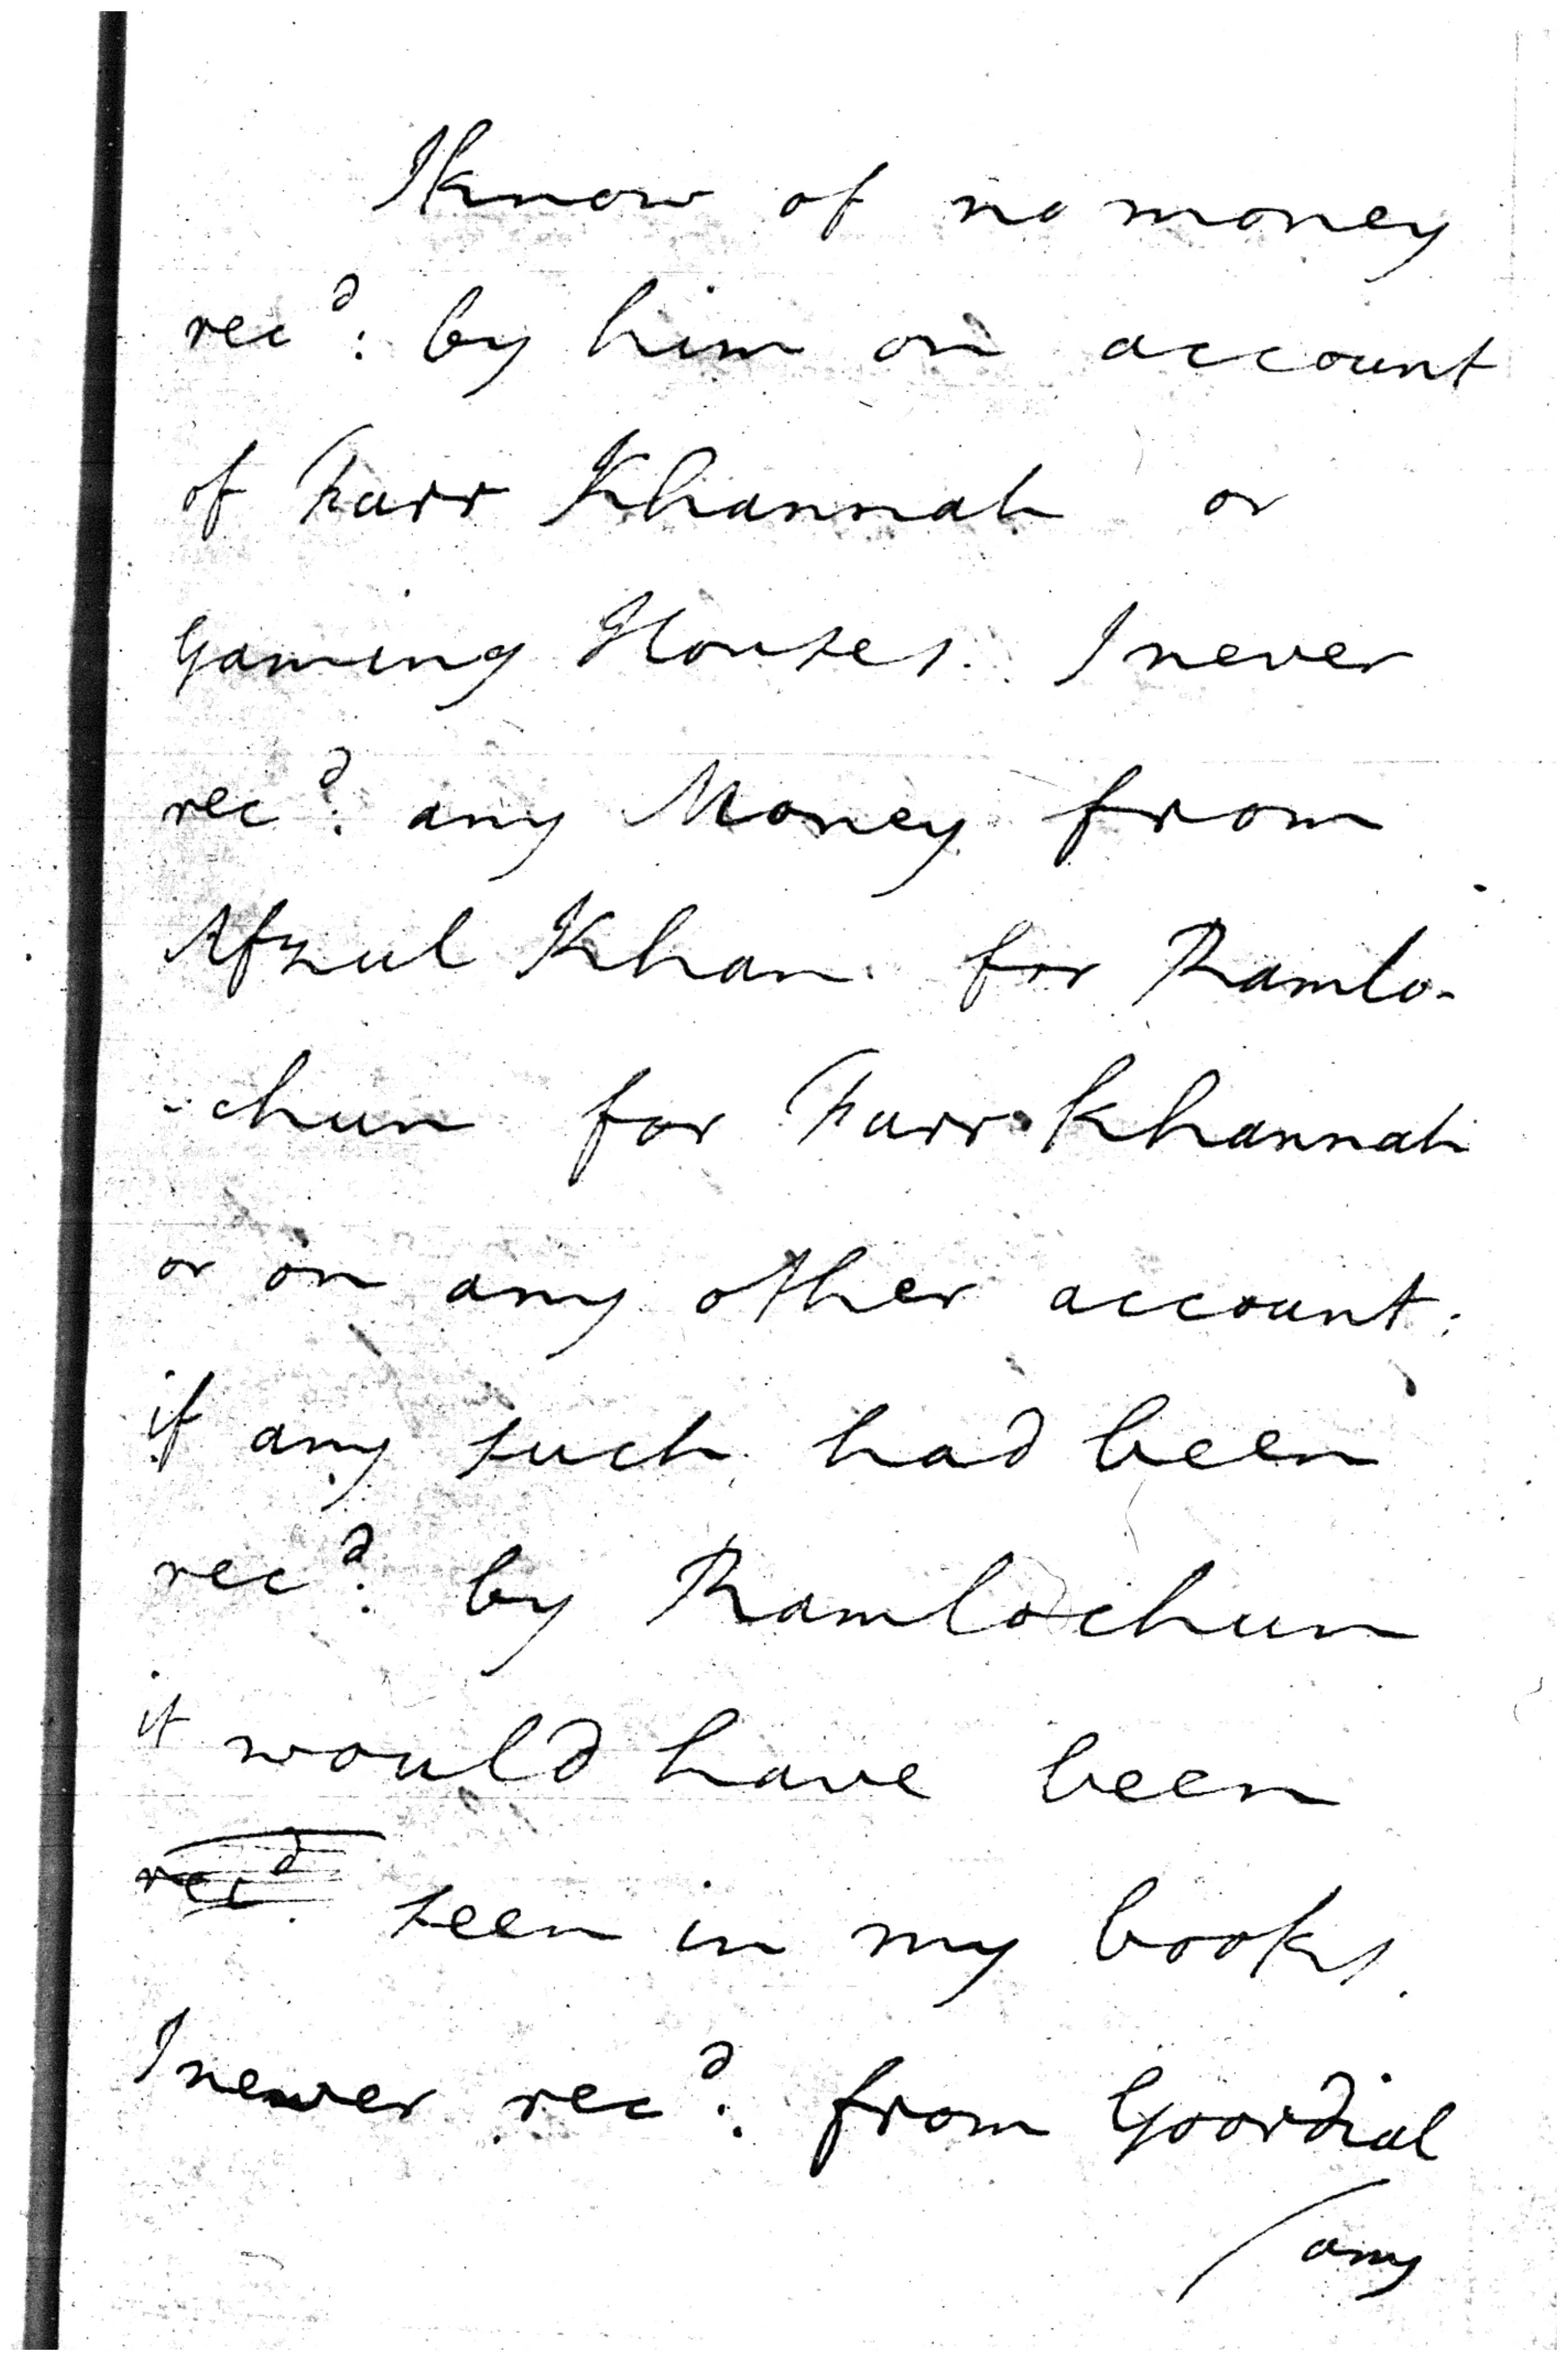 I know of no money
rec^d: by him on account
of Farr Khannah or
Gaming Houses. I never
rec^d: any Money from
Afzul Khan for Ramlo-
-chun for Farr Khannah
or on any other account:
if any such had been
rec^d: by Ramlochun
it would have been
rec^d. seen in my books.
I never rec^d: from Goordial
any